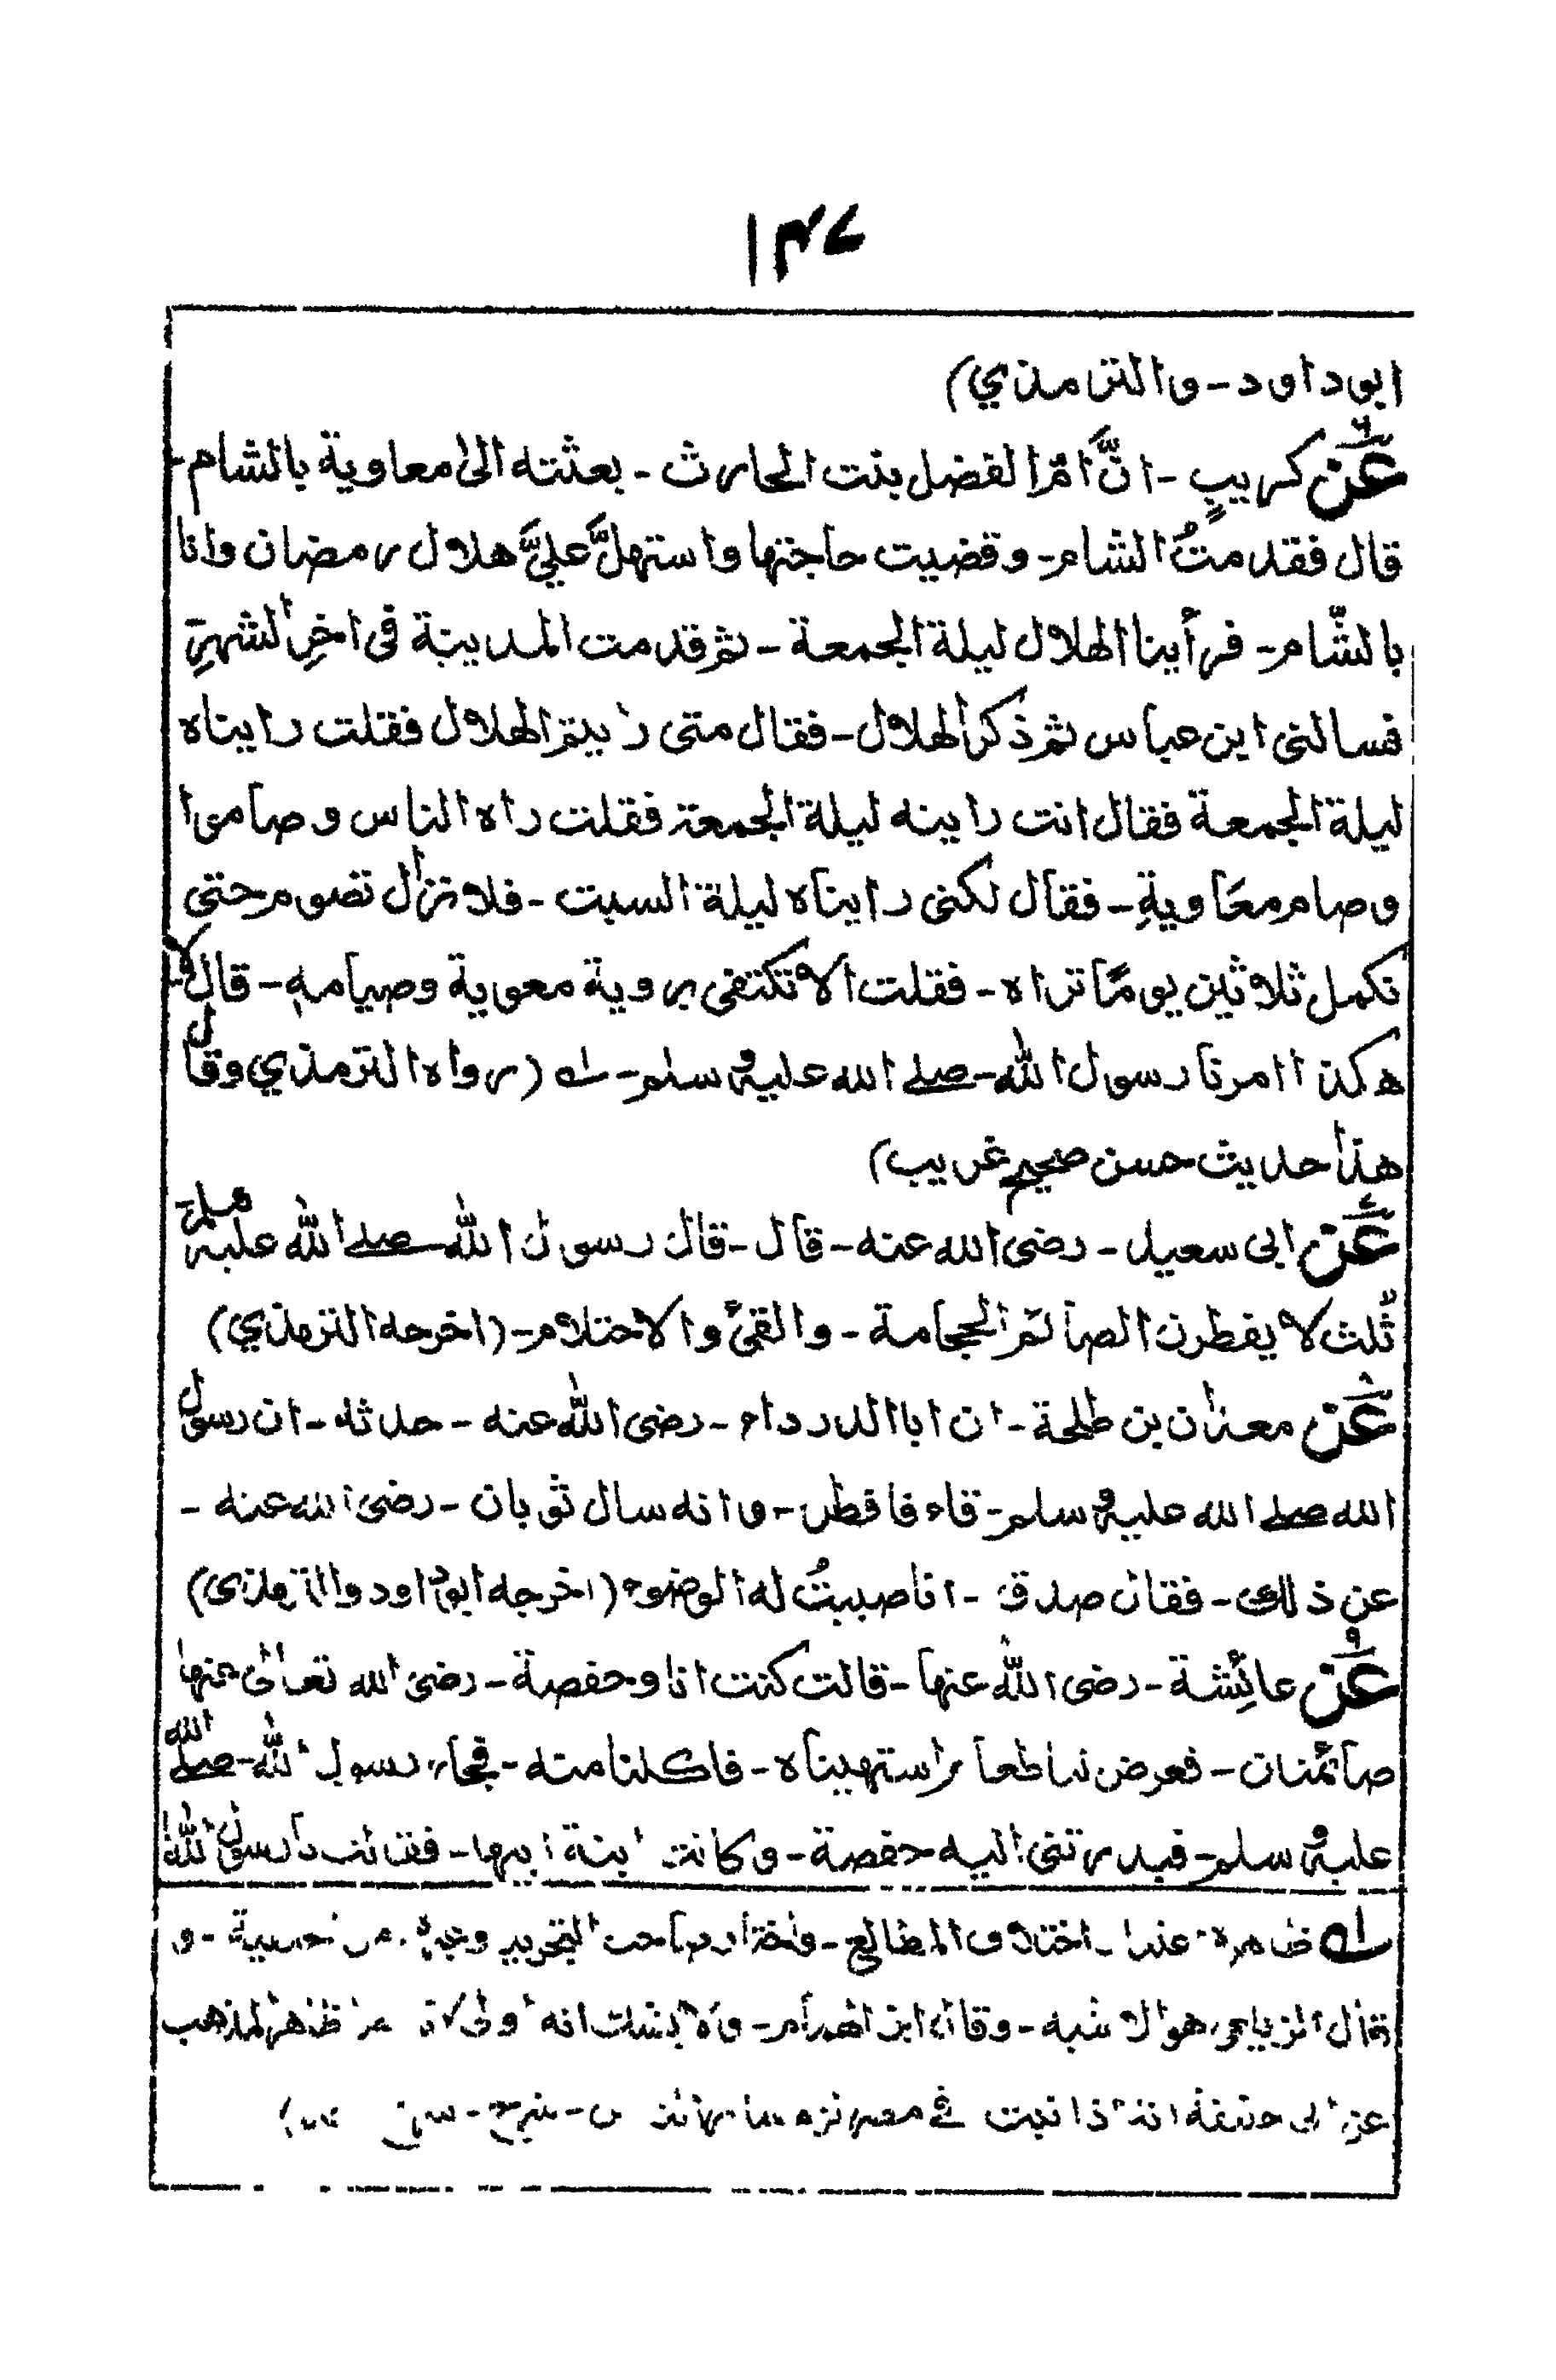 ۱۴۷
ابوداود - والترمذي)
عن۶ كريبٍ - انَّ امَّ الفضل بنت الحارث - بعثته الى معاوية بالشام -
قال فقدمتُ الشام - وقضيت حاجتها واستهلَّ عليَّ هلال رمضان وانا
بالشّام - فرأينا الهلال ليلة الجمعة - ثم قدمت المدينة فى اخرِ الشهرِ
فسالنى ابن عباس ثم ذكر الهلال - فقال متى رايتم الهلال فقلت رايناه
ليلة الجمعة فقال انت رايته ليلة الجمعة فقلت راه الناس وصاموا
وصام معاوية - فقال لكنى رايناه ليلة السبت - فلا نزال نصوم حتى
نكمل ثلاثين يومًا او نراه - فقلت الا تكتفى بروية معوية وصيامه - قال لا
هكذا امرنا رسول الله - صلے الله عليه وسلم - له (رواه الترمذي وقال
هذا حديث حسن صحيح غريب)
عن۷ ابى سعيد - رضى الله عنه - قال - قال رسول الله صلے الله عليه وسلم
ثلث لا يفطرن الصائم الحجامة - والقئ والاحتلام - (اخرجه الترمذي)
عن۸ معدان بن طلحة - ان ابا الدرداء - رضى الله عنه - حدثه - ان رسول
الله صلے الله عليه وسلم - قاء فافطر - وانه سال ثوبان - رضى الله عنه -
عن ذلك - فقال صدق - انا صببتُ له الوضوء (اخرجه ابو داود والترمذى)
عن۹ عائشة - رضى الله عنها - قالت كنت انا وحفصة - رضى الله تعالى عنها
صائمتان - فعرض لنا طعام اشتهيناه - فاكلنا منه - فجاء رسول الله - صلے الله
عليه وسلم - فبدرتنى اليه حفصة - وكانت ابنة ابيها - فقالت يا رسول الله
له ظاهره عندنا - اختلاف المطالع - واختاره صاحب التجريد وغيره من - و
قال الزيلعى هو الاشبه - وقال ابن الهمام - ولا يشك انه اولى ظاهر المذهب
عن ابى حنيفة انه اذا ثبت فے مصر لزم